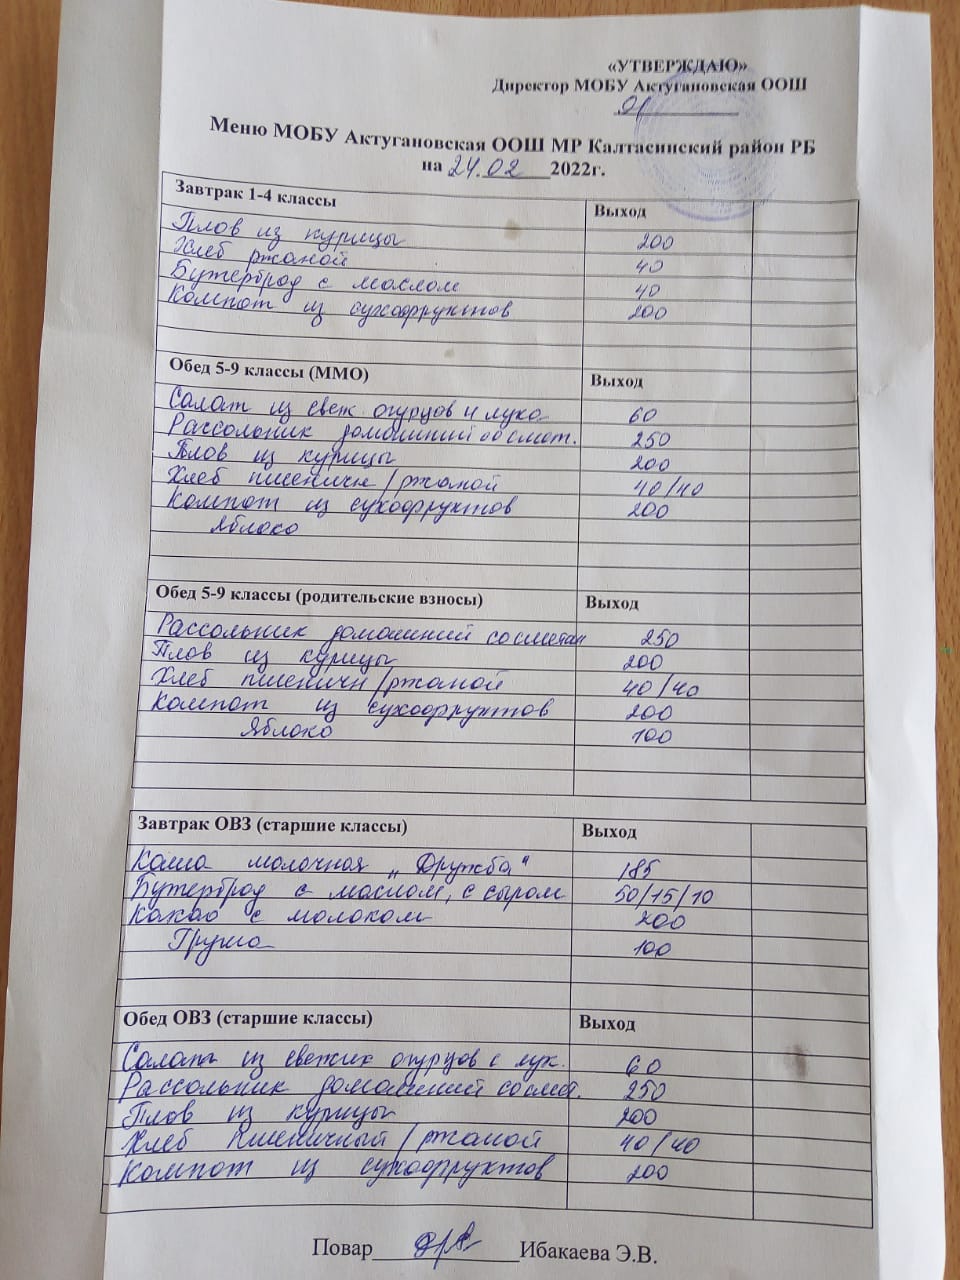 «УТВЕРЖДАЮ»
Директор МОБУ Актугановская ООШ
Меню МОБУ Актугановская ООШ МР Калтасинский район РБ
на 24.02 2022г.
Завтрак 1-4 классы Выход
Плов из курицы 200
Хлеб ржаной 40
Бутерброд с маслом 40
Компот из сухофруктов 200
Обед 5-9 классы (ММО) Выход
Салат из свеж. огурцов и лука 60
Рассольник домашний со смет. 250
Плов из курицы 200
Хлеб пшеничн/ржаной 40/40
Компот из сухофруктов 200
Яблоко
Обед 5-9 классы (родительские взносы) Выход
Рассольник домашний со сметан 250
Плов из курицы 200
Хлеб пшеничн/ржаной 40/40
Компот из сухофруктов 200
Яблоко 100
Завтрак ОВЗ (старшие классы) Выход
Каша молочная „Дружба" 185
Бутерброд с маслом, с сыром 50/15/10
Какао с молоком 200
Груша 100
Обед ОВЗ (старшие классы) Выход
Салат из свежих огурцов с лук. 60
Рассольник домашний со смет. 250
Плов из курицы 200
Хлеб пшеничный/ржаной 40/40
Компот из сухофруктов 200
Повар Ибакаева Э.В.